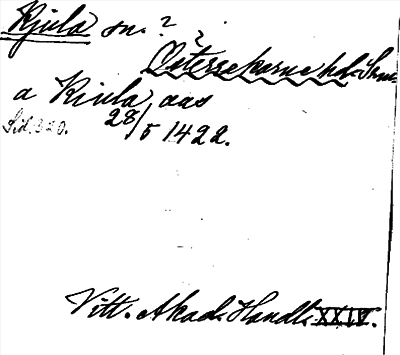 Kjula sn. ?
Österrekarne hd. Skm.
a Kiula aas
Sid. 320. 28/5 1422.
Vitt. Akad. Handl. XXIV.